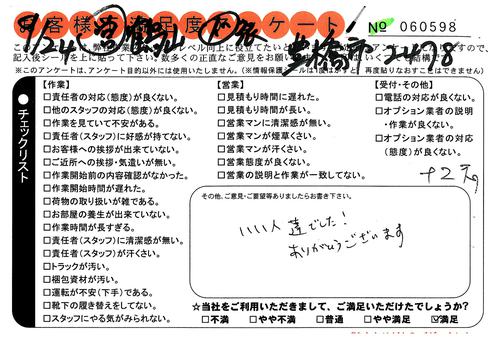 お客様満足度アンケート!
№ 060598
9/24
豊橋市 2478
記入後シールを上に貼って下さい。数多くの正直なご意見をお願い
※このアンケートは、アンケート目的以外には使用いたしません。
チェックリスト
【作業】
□責任者の対応(態度)が良くない。
□他のスタッフの対応(態度)が良くない。
□作業を見ていて不安がある。
□責任者(スタッフ)に好感が持てない。
□お客様への挨拶が出来ていない。
□ご近所への挨拶・気遣いが無い。
□作業開始前の内容確認がなかった。
□作業開始時間が遅れた。
□荷物の取り扱いが雑である。
□お部屋の養生が出来ていない。
□作業時間が長すぎる。
□責任者(スタッフ)に清潔感が無い。
□責任者(スタッフ)が汗くさい。
□トラックが汚い。
□梱包資材が汚い。
□運転が不安(下手)である。
□靴下の履き替えをしてない。
□スタッフにやる気がみられない。
【営業】
□見積もり時間に遅れた。
□見積もり時間が長い。
□営業マンに清潔感が無い。
□営業マンが煙草くさい。
□営業マンが汗くさい。
□営業態度が良くない。
□営業の説明と作業が一致してない。
【受付・その他】
□電話の対応が良くない。
□オプション業者の説明
・作業が良くない。
□オプション業者の対応
(態度)が良くない。
その他、ご意見・ご要望等ありましたらお書き下さい。
いい人達でした!
ありがとうございます
☆当社をご利用いただきまして、ご満足いただけたでしょうか?
□不満 □やや不満 □普通 □やや満足 ☑満足